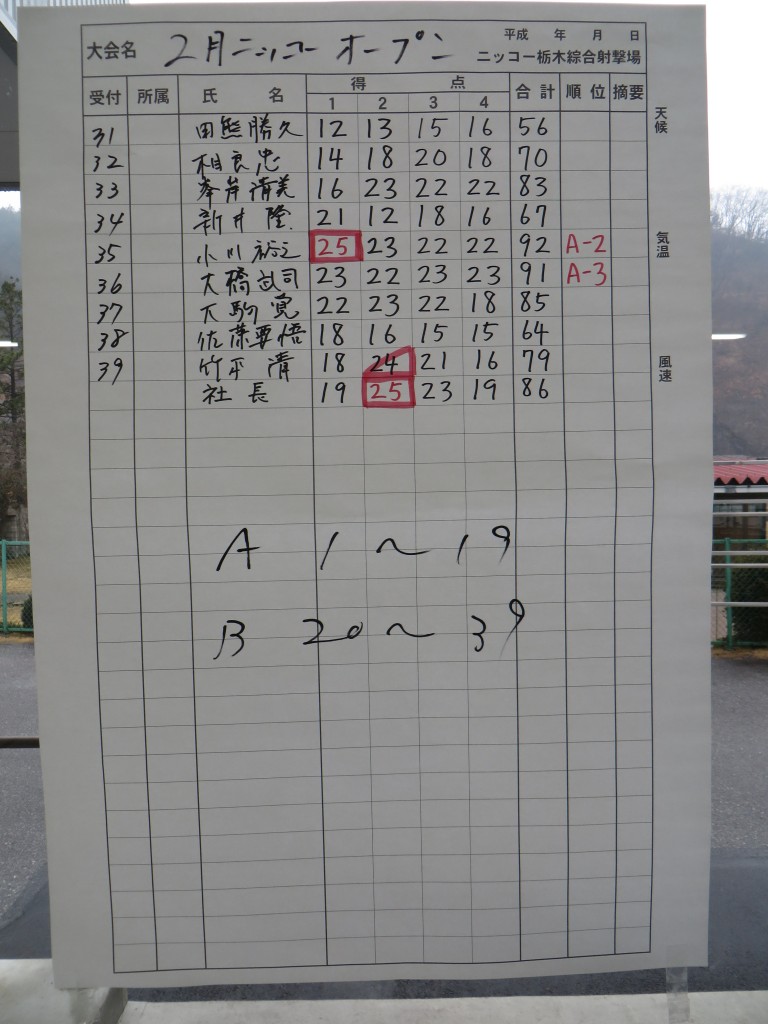 平成 年 月 日
大会名 2月ニッコーオープン ニッコー栃木綜合射撃場
受付 所属 氏名 得点 合計 順位 摘要
1 2 3 4
31 田熊勝久 12 13 15 16 56
32 相良忠 14 18 20 18 70
33 峯岸清美 16 23 22 22 83
34 新井隆 21 12 18 16 67
35 小川 25 23 22 22 92 A-2
36 大橋 司 23 22 23 23 91 A-3
37 大駒寛 22 23 22 18 85
38 佐藤要悟 18 16 15 15 64
39 竹平清 18 24 21 16 79
社長 19 25 23 19 86
A 1〜19
B 20〜39
天候
気温
風速